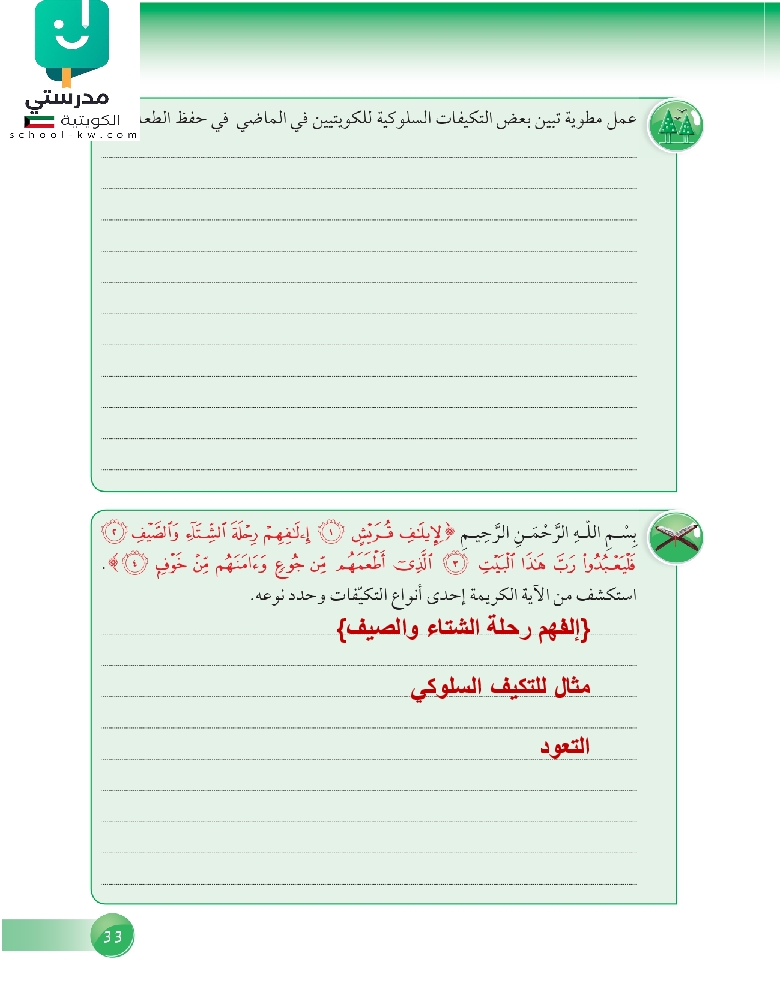 مدرستي
الكويتية
school-kw.com
عمل مطوية تبين بعض التكيفات السلوكية للكويتيين في الماضي في حفظ الطعا
بِسْمِ اللَّـهِ الرَّحْمَـنِ الرَّحِيـمِ ﴿لِإِيلَـٰفِ قُـرَيْشٍ ۝١ إِۦلَـٰفِهِمْ رِحْلَةَ ٱلشِّتَآءِ وَٱلصَّيْفِ ۝٢
فَلْيَعْبُدُوا۟ رَبَّ هَـٰذَا ٱلْبَيْتِ ۝٣ ٱلَّذِىٓ أَطْعَمَهُم مِّن جُوعٍ وَءَامَنَهُم مِّنْ خَوْفٍۭ ۝٤﴾.
استكشف من الآية الكريمة إحدى أنواع التكيّفات وحدد نوعه.
{إلفهم رحلة الشتاء والصيف}
مثال للتكيف السلوكي
التعود
33